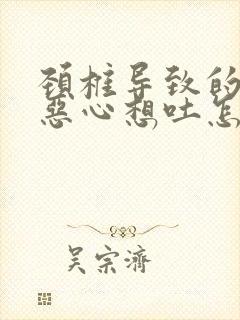 颈椎导致的
恶心想吐怎
吴宗濟